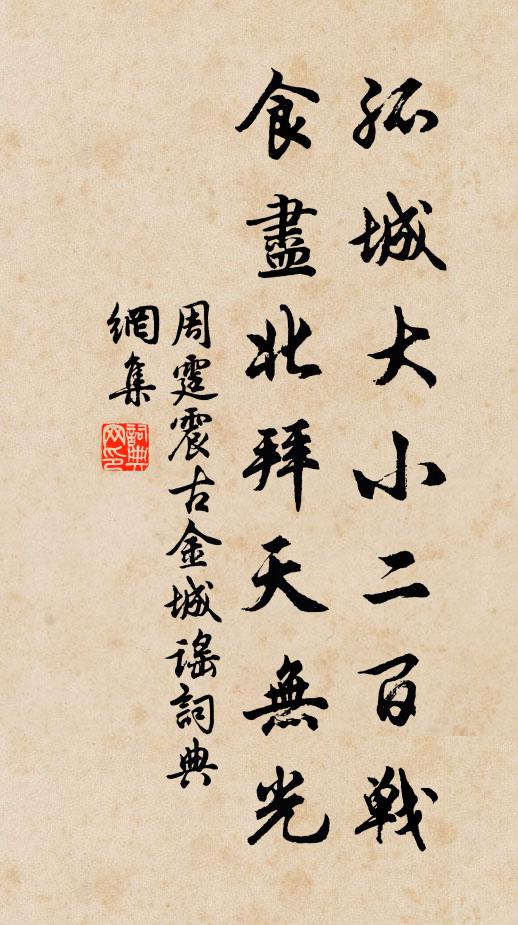 孤城大小二百戦
食盡北拜天無光
周霆震古金城謠詞典
網集
詞典网印